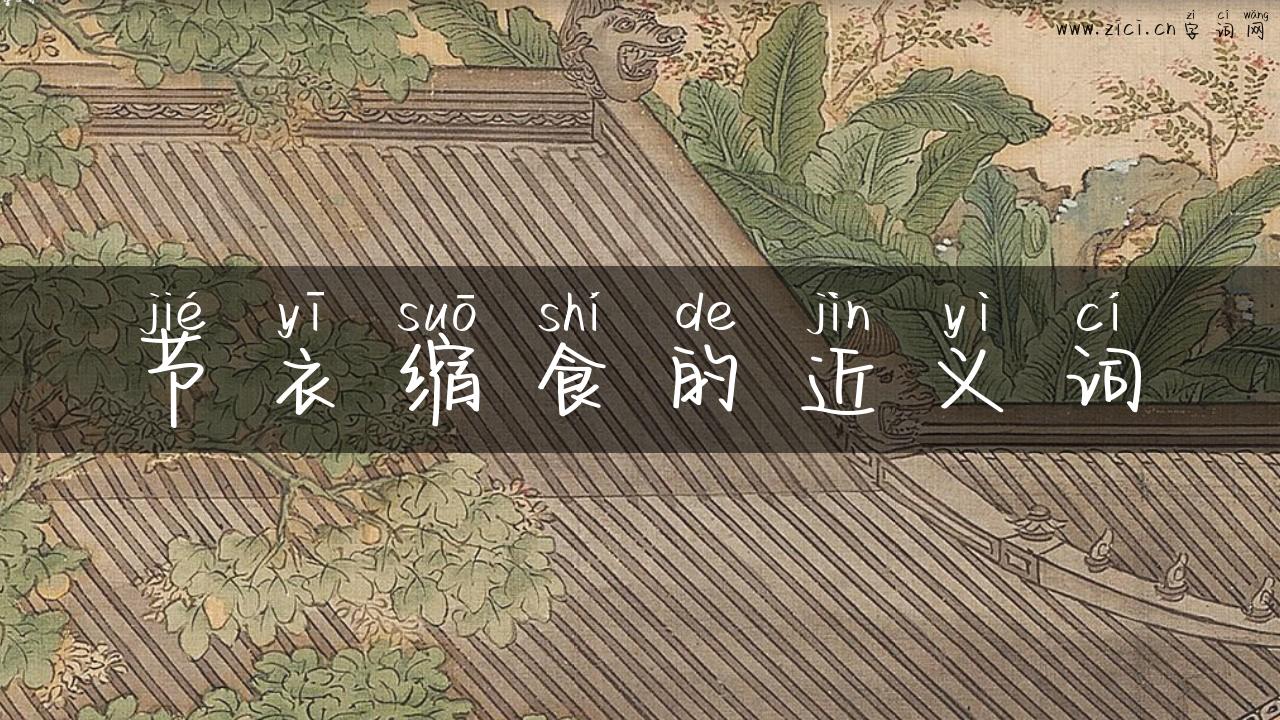 zì cí wǎng
www.zici.cn 字词网
jié yī suō shí de jìn yì cí
节衣缩食的近义词